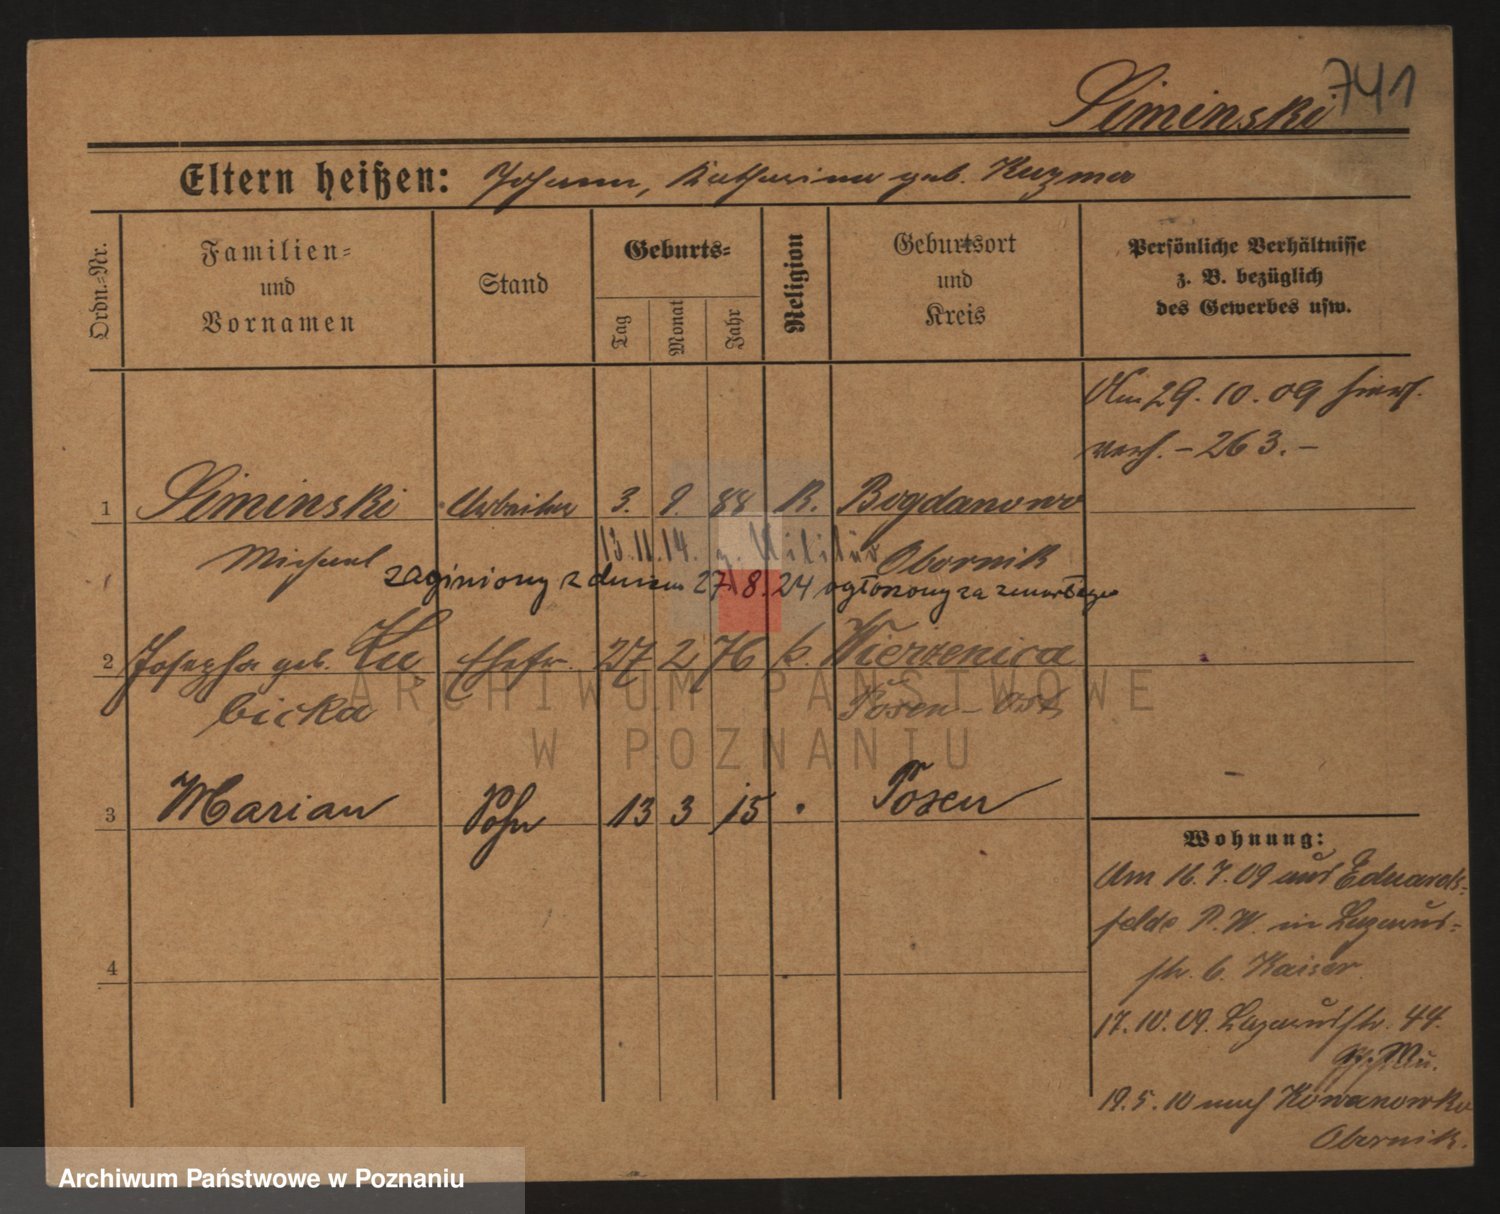 Siminski 741
Eltern heißen: Johann, Katharina geb. Kuzma
Ordn.=Nr.
Familien=
und
Vornamen
Stand
Geburts=
Tag
Monat
Jahr
Religion
Geburtsort
und
Kreis
Persönliche Verhältnisse
z. B. bezüglich
des Gewerbes usw.
Am 29. 10. 09 hiers.
verh. – 263. –
1 Siminski Arbeiter 3. 9. 88 R. Bogdanowo
13. 11. 14. z. Militär
Michael Obornik
zaginiony z dniem 27.8.24 ogłoszony za zmarłego
2 Josepha geb. Ku Ehefr. 27 2 76 k. Wierzenica
bicka Posen – Ost
ARCHIWUM PAŃSTWOWE
W POZNANIU
3 Marian Sohn 13 3 15 Posen
4
Wohnung:
Am 16. 7. 09 aus Eduards-
felde P. W. in Lazarus-
str. 6. Kaiser
17. 10. 09. Lazarusstr. 44.
19. 5. 10 nach Kowanowko
Obornik.
Archiwum Państwowe w Poznaniu